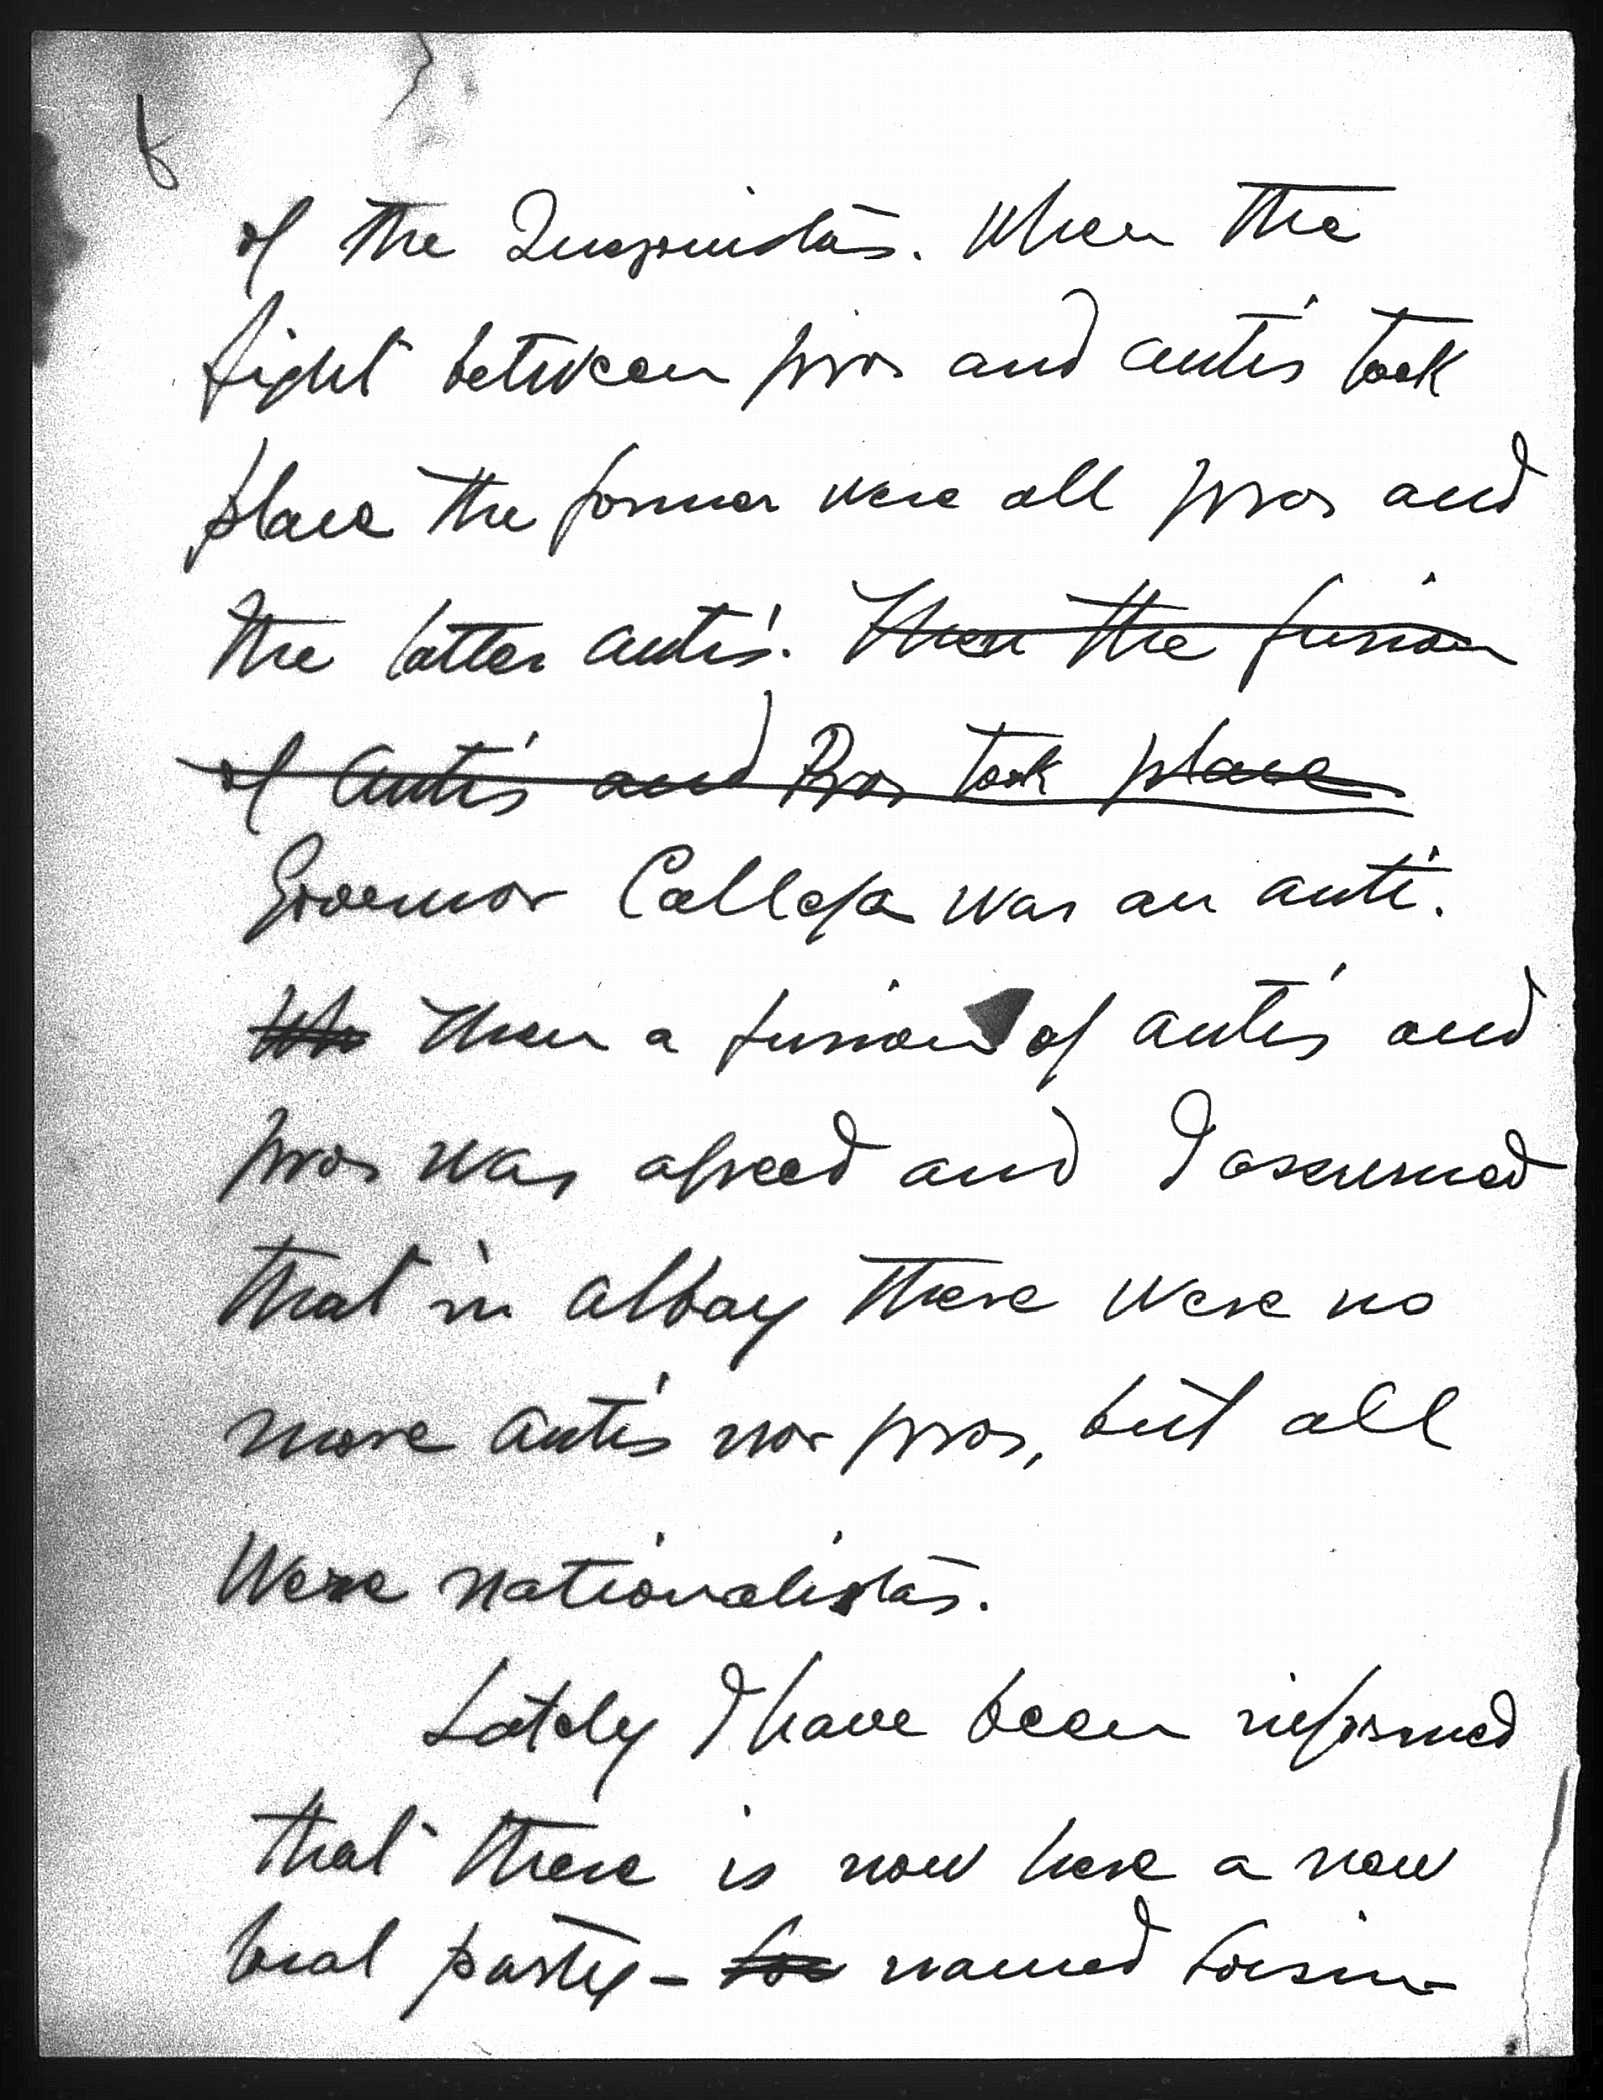 8
of the Quezonistas. When the
fight between pros and antis took
place the former were all pros and
the latter antis. Then the fusion
of Antis and Pros took place
Governor Calleja was an anti.
Then a fusion of antis and
pros was agreed and I assumed
that in Albay there were no
more antis nor pros, but all
were nationalistas.
Lately I have been informed
that there is now here a new
local party - named